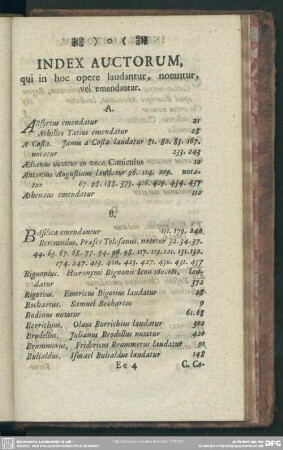 ) o (
INDEX AUCTORUM,
qui in hoc opere laudantur, notantur,
vel emendantur.
A.
emendatur 21
Achilles Tatius emendatur 23
A Costa. Janus a Costa laudatur 81. 82. 83. 167.
notatur 233. 243
Ælianus notatur in voce Cuniculus 10
Antonius Augustinus laudatur 96. 114. 209. nota-
tur 67. 98. 188. 375. 416. 429. 434. 437
Athenæus emendatur 112
B.
Basilica emendantur 111. 179. 240
Bertrandus, Præses Tolosanus, notatur 32. 34. 37.
44. 63. 67. 68. 77. 94. 96. 98. 117. 119. 121. 131. 132.
174. 247. 415. 420. 425. 427. 430. 431. 437
Bignonius. Hieronymi Bignonii Icon 160. 161. lau-
datur 372
Bigotius. Emericus Bigotius laudatur 25
Bochartus. Samuel Bochartus 9
Bodinus notatur 61. 68
Borrichius. Olaus Borrichius laudatur 392
Brodellus. Julianus Brodellus notatur 420
Brummerus. Fridericus Brummerus laudatur 91
Bulialdus. Ismael Bulialdus laudatur 148
Ee 4 C. Ca-